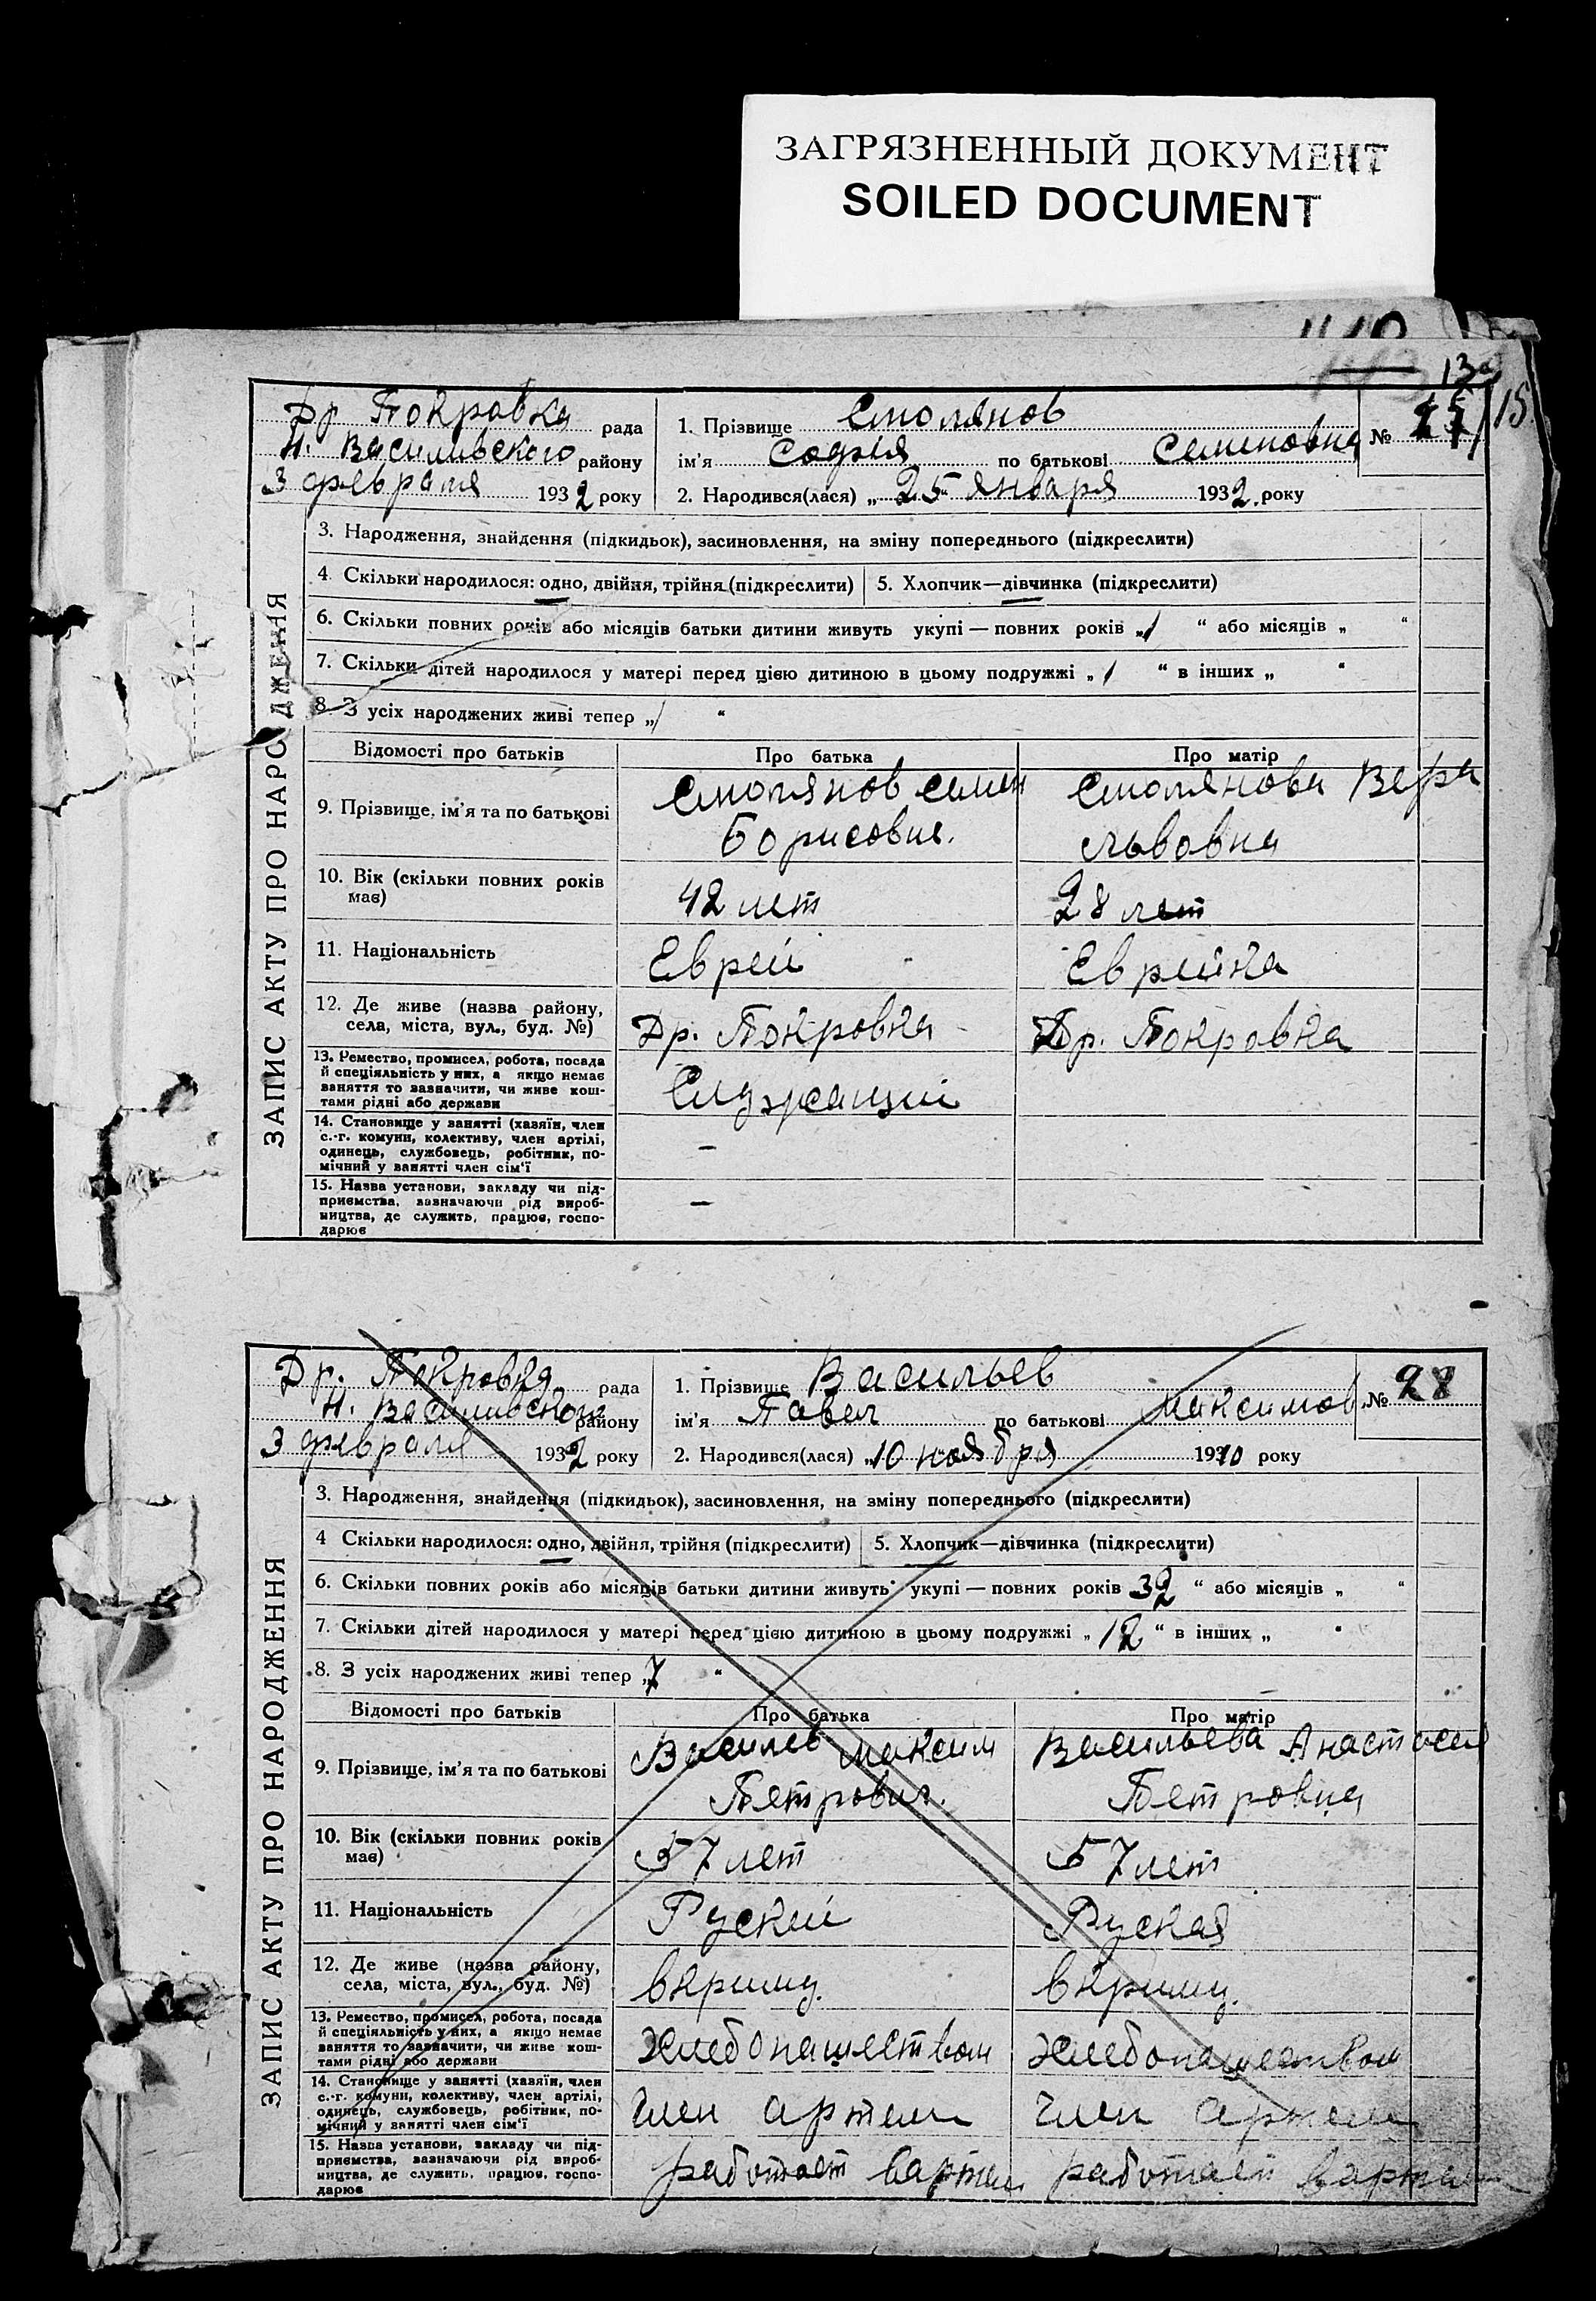 ЗАГРЯЗНЕННЫЙ ДОКУМЕНТ
SOILED DOCUMENT
13
15
ЗАПИС АКТУ ПРО НАРОДЖЕННЯ
Др Покровка рада
Н. Васильвского району
3 февраля 1932 року
1. Прізвище Смолянов
ім'я Софія по батькові Семеновна
№
2. Народився(лася) „25" января 1932. року
3. Народження, знайдення (підкидьок), засиновлення, на зміну попереднього (підкреслити)
4. Скільки народилося: одно, двійня, трійня (підкреслити) 5. Хлопчик—дівчинка (підкреслити)
6. Скільки повних років або місяців батьки дитини живуть укупі — повних років „1 “ або місяців „ “
7. Скільки дітей народилося у матері перед цією дитиною в цьому подружжі „ 1 “ в інших „ “
8. З усіх народжених живі тепер „1 “
Відомості про батьків Про батька Про матір
9. Прізвище, ім'я та по батькові
Смолянов Семен Борисович.
Смолянова Вера Львовна
10. Вік (скільки повних років має) 42 лет 28 лет
11. Національність Еврей Еврейка
12. Де живе (назва району, села, міста, вул., буд. №) Др. Покровка Др. Покровка
13. Ремество, промисел, робота, посада
й спеціяльність у них, а якщо немає
заняття то зазначити, чи живе кош-
тами рідні або держави
Служащий
14. Становище у занятті (хазяїн, член
с.-г. комуни, колективу, член артілі,
одинець, службовець, робітник, по-
мічний у занятті член сім'ї
–
15. Назва установи, закладу чи під-
приємства, зазначаючи рід вироб-
ництва, де служить, працює, госпо-
дарює
–
ЗАПИС АКТУ ПРО НАРОДЖЕННЯ
Др. Покровка рада
Н. Васильвского району
3 февраля 1932 року
1. Прізвище Васильев
ім'я Павел по батькові Максимов
№ 28
2. Народився(лася) „10 ноября 1910 року
3. Народження, знайдення (підкидьок), засиновлення, на зміну попереднього (підкреслити)
4 Скільки народилося: одно, двійня, трійня (підкреслити) 5. Хлопчик—дівчинка (підкреслити)
6. Скільки повних років або місяців батьки дитини живуть укупі — повних років 32 “ або місяців „ “
7. Скільки дітей народилося у матері перед цією дитиною в цьому подружжі „ 12 “ в інших „ “
8. З усіх народжених живі тепер „7 “
Відомості про батьків Про батька Про матір
9. Прізвище, ім'я та по батькові
Василев Максим Петрович.
Васильева Анастасия Петровна
10. Вік (скільки повних років має) 57 лет 57 лет
11. Національність Руский Руская
12. Де живе (назва району, села, міста, вул., буд. №) вкриму. вкриму.
13. Ремество, промисел, робота, посада
й спеціяльність у них, а якщо немає
заняття то зазначити, чи живе кош-
тами рідні або держави
Хлебопашеством Хлебопашеством
14. Становище у занятті (хазяїн, член
с.-г. комуни, колективу, член артілі,
одинець, службовець, робітник, по-
мічний у занятті член сім'ї
Член артели Член артели
15. Назва установи, закладу чи під-
приємства, зазначаючи рід вироб-
ництва, де служить, працює, госпо-
дарює
работает вартели работает вартели